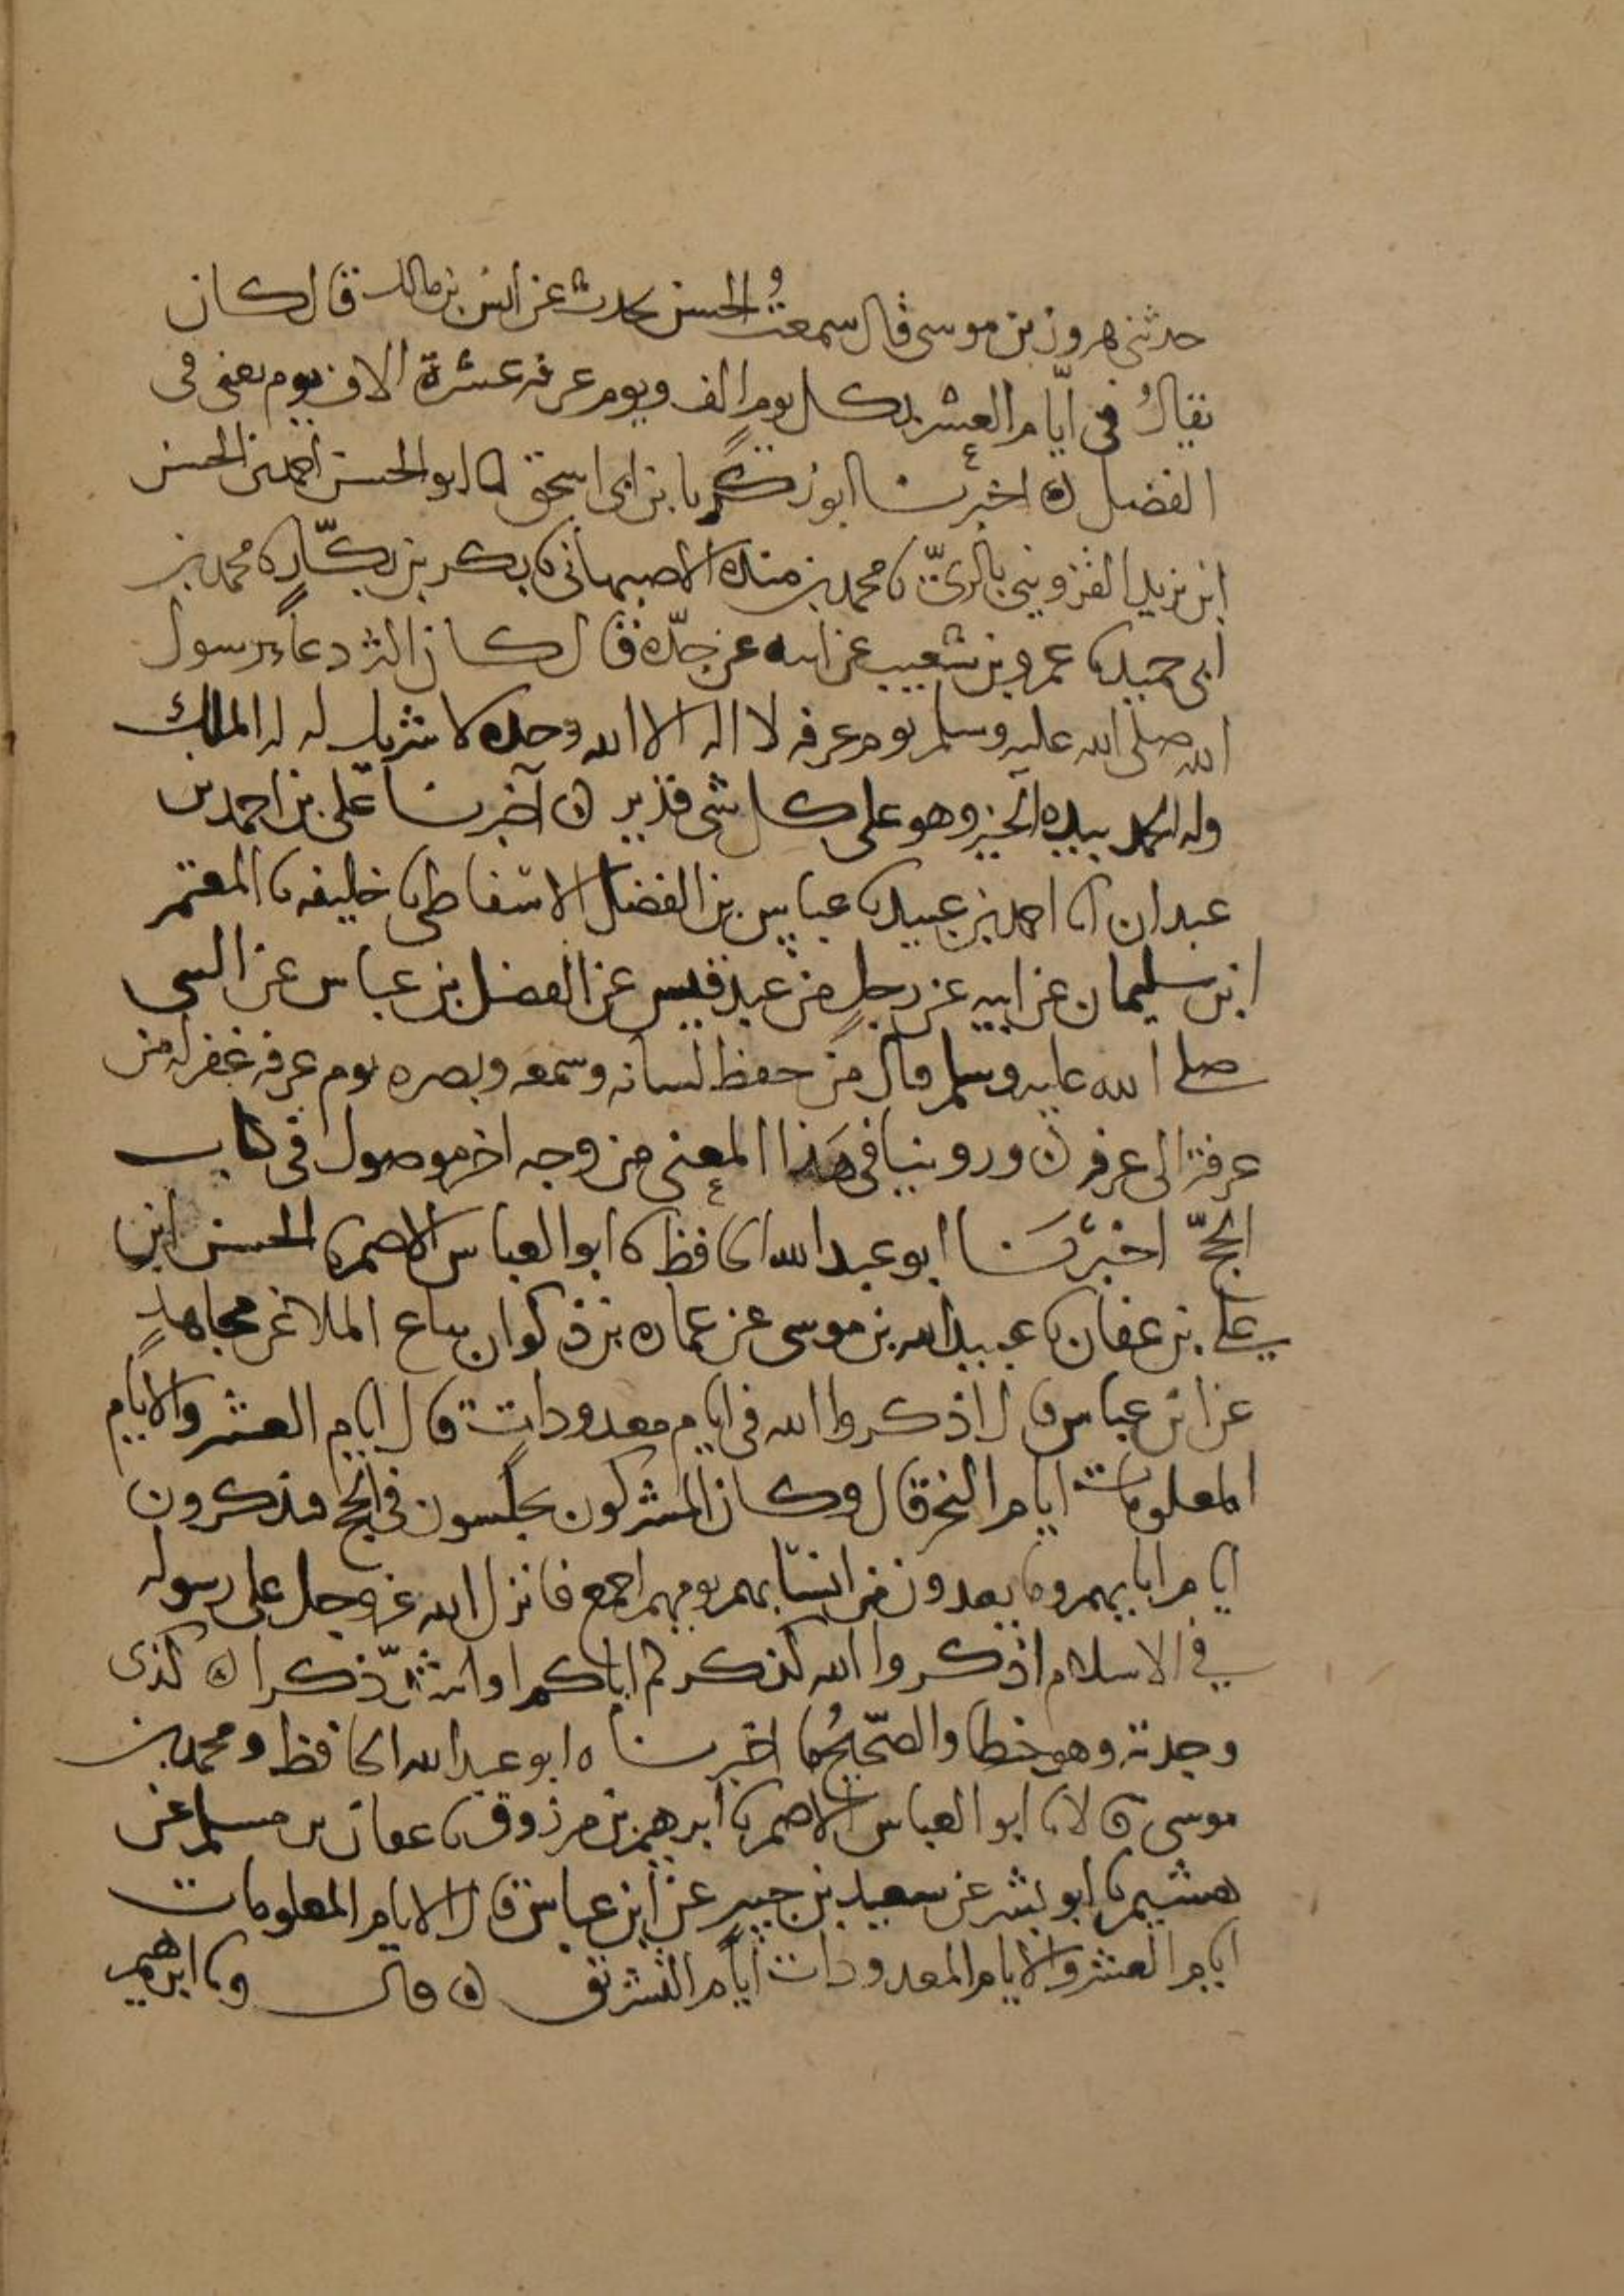 حدثنى هرون بن موسى قال سمعتُ الحسن يحدث عن انس بن مالك قال كان
يقالُ فى ايّام العشر بكل يوم الف ويوم عرفه عشرة الاف يوم يعنى فى
الفضل ه اخبرنا ابو زكريا بن ابى اسحق انا ابو الحسن احمد بن الحسن
ابن يزيد القزوينى بالرىّ نا محمد بن منده الاصبهانى نا بكر بن بكّارٍ نا محمد بن
ابى حميد نا عمرو بن شعيب عن ابيه عن جدّه قال كان اكثر دعاء رسول
الله صلى الله عليه وسلم يوم عرفه لا اله الا الله وحده لا شريك له له الملك
وله الحمد بيده الخير وهو على كل شى قدير ه اخبرنا على بن احمد بن
عبدان انا احمد بن عبيد نا عباس بن الفضل الاسفاطى نا خليفه نا المعتمر
ابن سليمان عن ابيه عن رجلٍ من عبد قيس عن الفضل بن عباس عن النبى
صلى الله عليه وسلم قال من حفظ لسانه وسمعه وبصره يوم عرفه غفر له من
عرفة الى عرفه ه وروينا فى هَذا المعنى من وجه اخر موصول فى كتاب
الحجّ اخبرَنا ابو عبد الله الحافظ نا ابو العباس الاصم نا الحسن ابن
على بن عفان نا عبيد الله بن موسى عن عماره بن ذكوان بياع الملا عن مجاهدٍ
عن ابن عباس قال اذكروا الله فى ايام معدودات قال ايام العشر والايام
المعلومات ايام النحر قال وكان المشركون يجلسون فى الحج فيذكرون
ايام ابايهم وما يعدون من انسابهم يومهم اجمع فانزل الله عز وجل على رسوله
فى الاسلام اذكروا الله كذكركم اباكم او اشدّ ذكرا ه كذى
وجدته وهو خطا والصّحيحُ ما اخبرنا ه ابو عبد الله الحافظ ومحمد بن
موسى قالا نا ابو العباس الاصم نا ابرهيم بن مرزوق نا عفان بن مسلم عن
هشيم نا ابو بشر عن سعيد بن جبير عن ابن عباس قال الايام المعلومات
ايام العشر والايام المعدودات ايام التشريق ه قال ونا ابرهيم